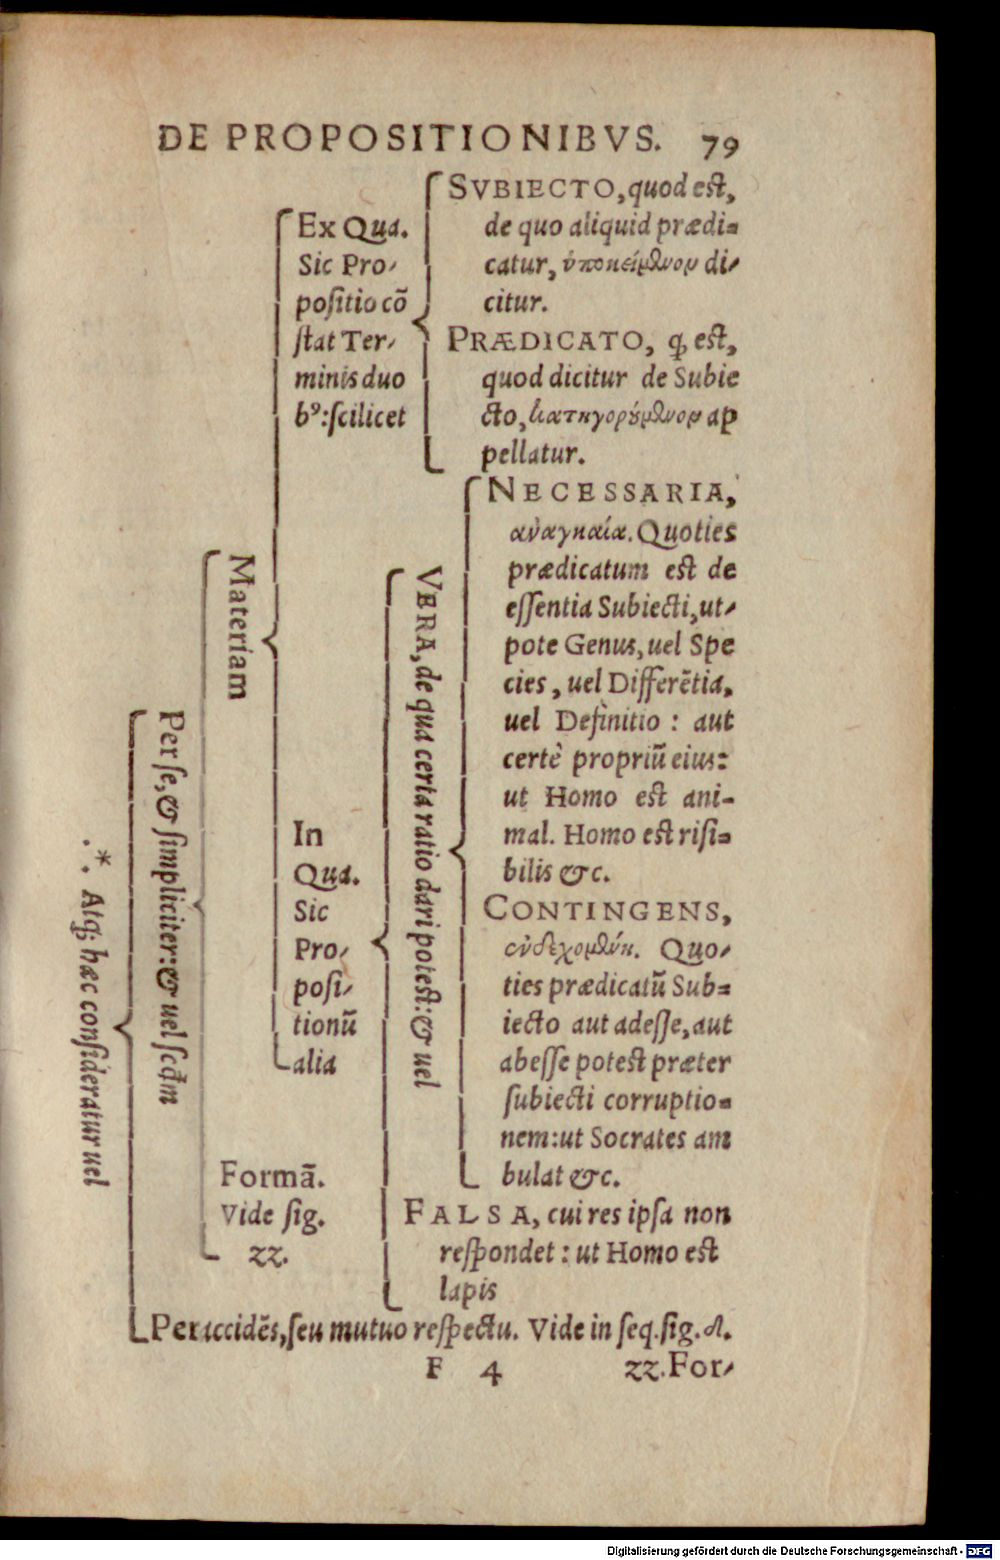 DE PROPOSITIONIBVS. 79
⁎ Atq; hæc consideratur uel
Per se, & simpliciter: & uel scdm
Materiam
Ex Qua.
Sic Pro-
positio cō
stat Ter-
minis duo
bꝰ: scilicet
SVBIECTO, quod est,
de quo aliquid prædi-
catur, ὑποκείμενον di-
citur.
PRÆDICATO, ꝙ est,
quod dicitur de Subie
cto, κατηγορούμενον ap
pellatur.
In
Qua.
Sic
Pro-
posi-
tionū
alia
VERA, de qua certa ratio dari potest: & uel
NECESSARIA,
ἀναγκαία. Quoties
prædicatum est de
essentia Subiecti, ut-
pote Genus, uel Spe
cies, uel Differētia,
uel Definitio : aut
certè propriū eius:
ut Homo est ani-
mal. Homo est risi-
bilis &c.
CONTINGENS,
ἐνδεχομένη. Quo-
ties prædicatū Sub-
iecto aut adesse, aut
abesse potest præter
subiecti corruptio-
nem: ut Socrates am
bulat &c.
FALSA, cui res ipsa non
respondet : ut Homo est
lapis
Formā.
Vide sig.
zz.
Per accidēs, seu mutuo respectu. Vide in seq. sig.
F 4 zz. For-
Digitalisierung gefördert durch die Deutsche Forschungsgemeinschaft - DFG